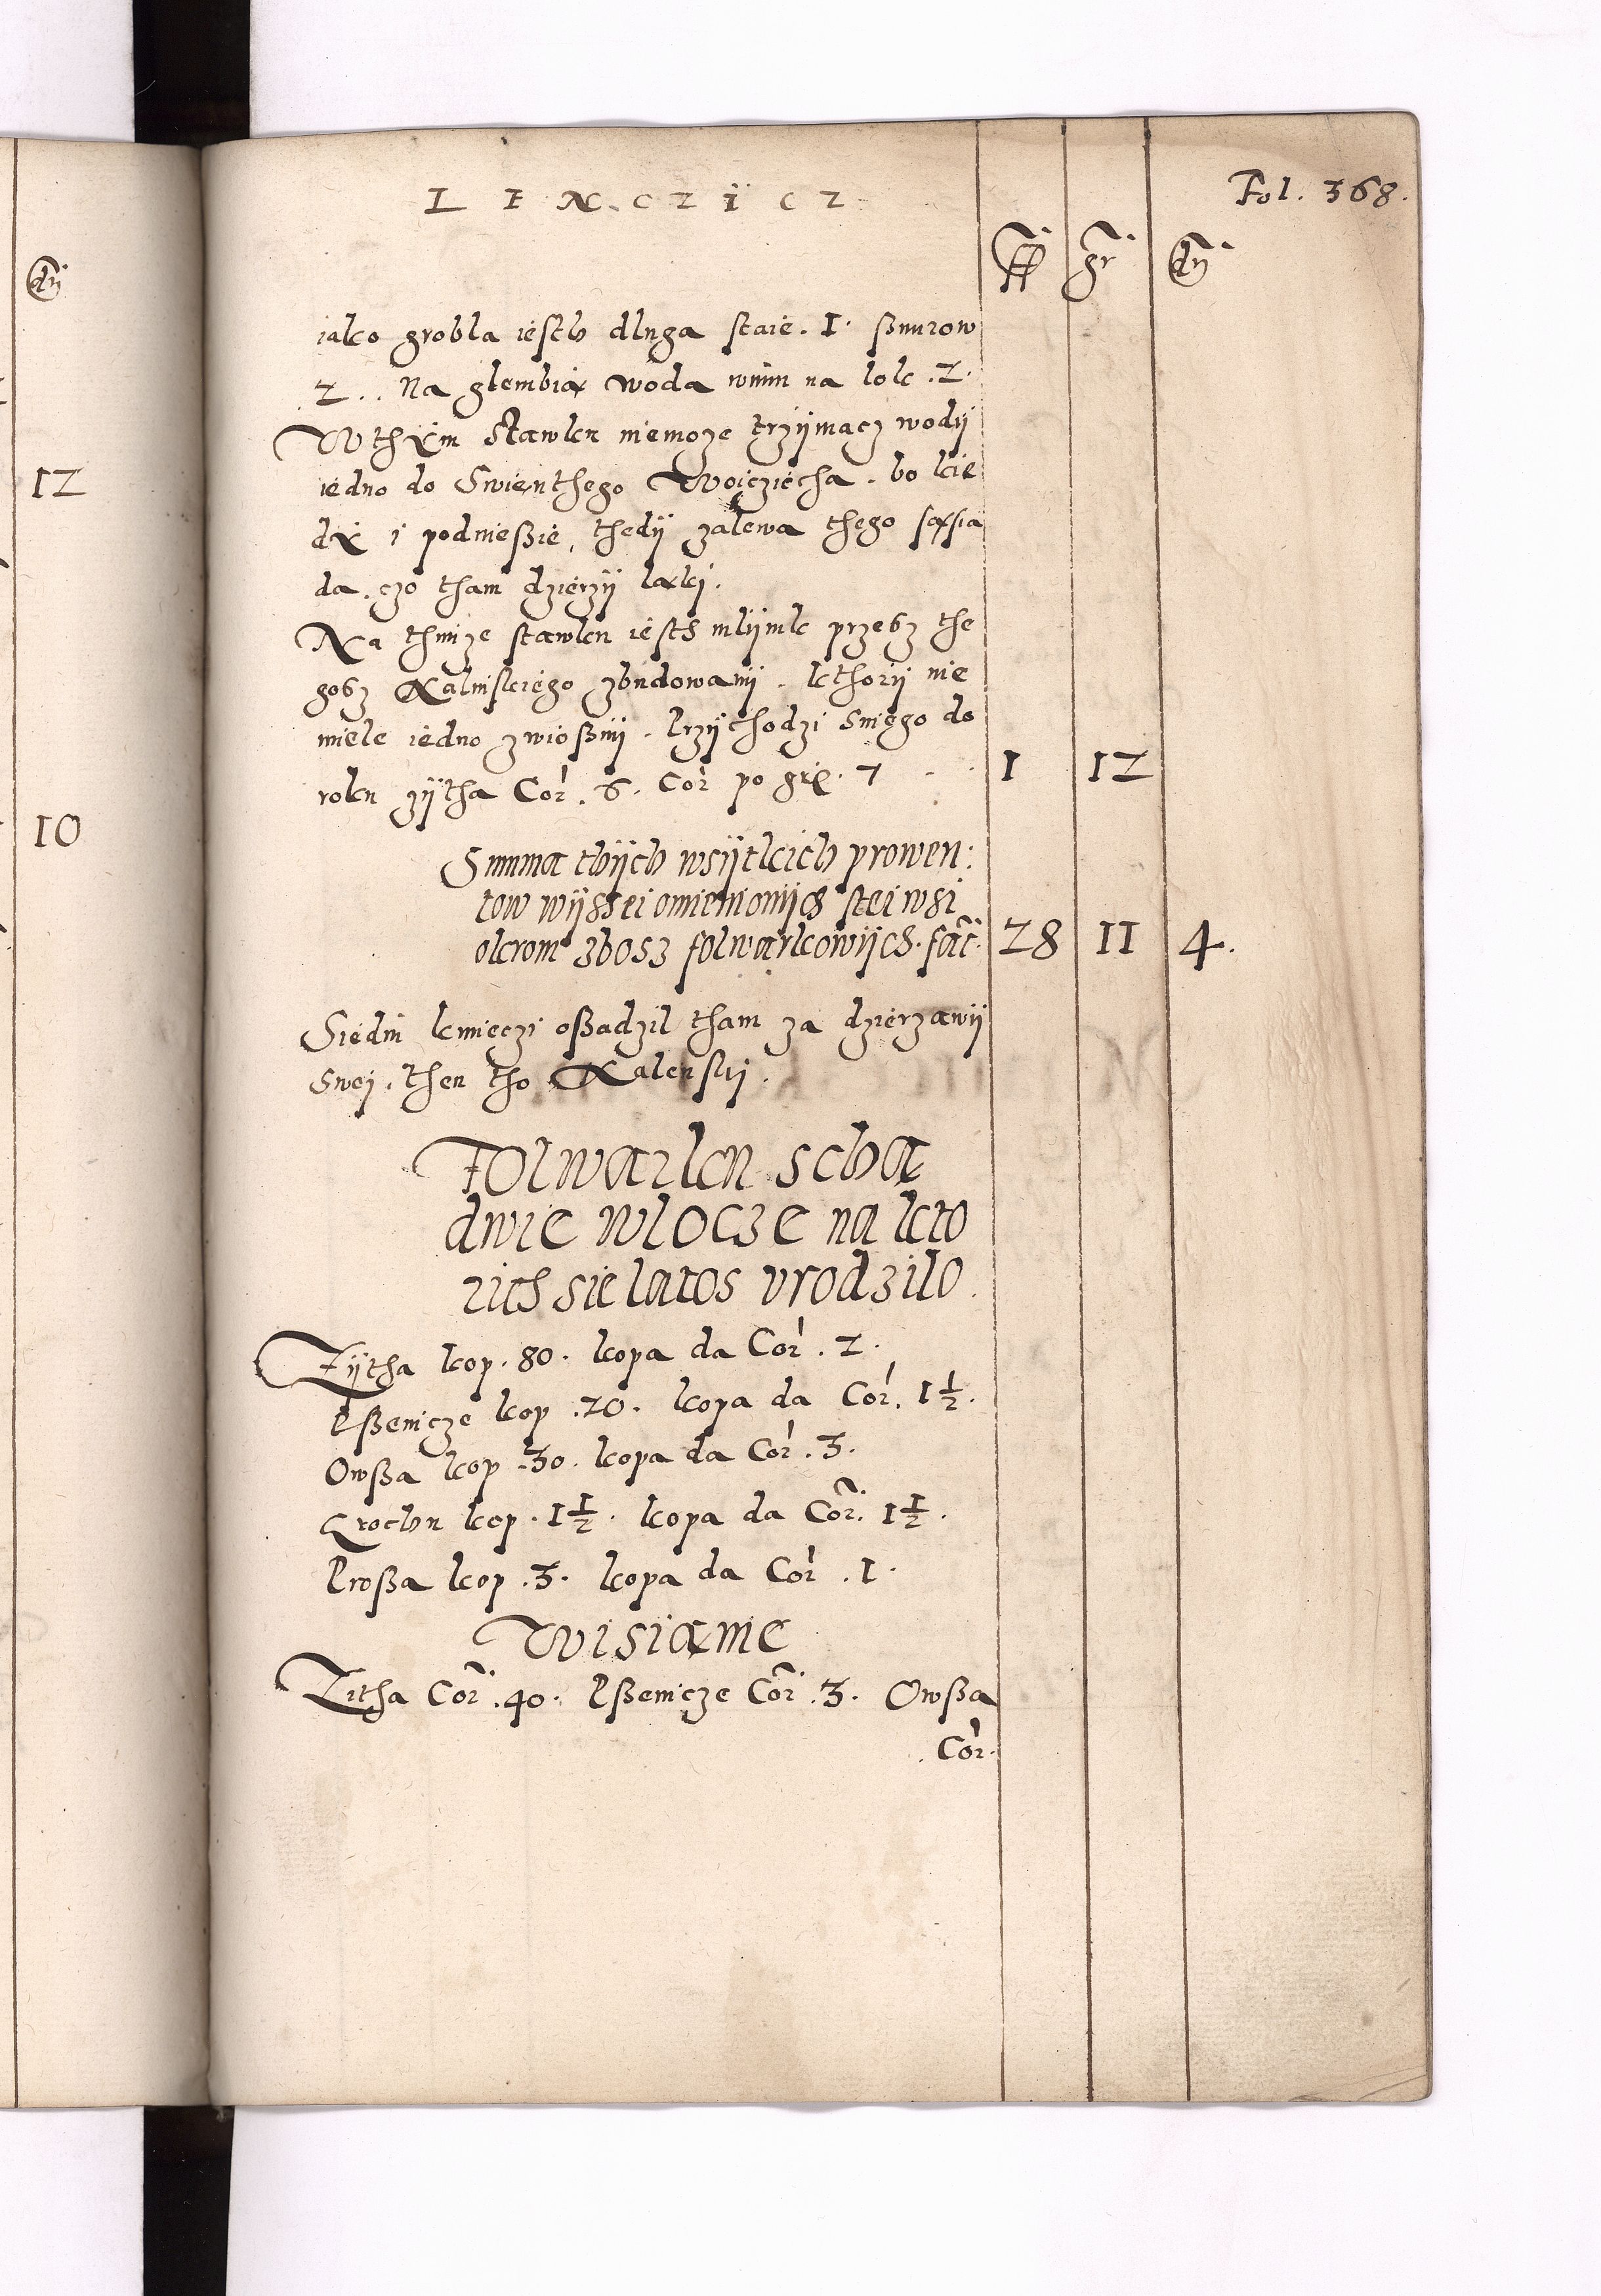 LENCZÿCZ
Fol. 368.
ff gr dn
dn
12
10
iako grobla iesth dluga staie . 1 . ßnurow
2 .. Na glembią woda wnim na lok . 2 .
W thÿm stawku niemoze trzÿmacz wodÿ
iedno do Swienthego Woiciecha . bo kie
dÿ i podnießie, thedÿ zalewa thego sąsia
da . czo tham dzierzÿ laki .
Na thmze stawku iesth mlÿnik przesz the
gosz Kalinskiego zbudowanÿ . kthorÿ nie
miele iedno zwioßnÿ . Przÿchodzi Sniego do
roku zÿtha Cor . 6 . Cor po grß . 7 . . 1 12
Summa thÿch wsÿtkich prowen:
tow wÿssei omienionÿch stei wsi
okrom zbosz folwarkowÿch . facit . 28 11 4 .
Siedm kmieczi oßadzil tham za dzierzawÿ
Swej . then tho Kalenskj .
Folwarku scha
dwie wlocze na kto
rich sie latos vrodzilo .
Zÿtha kop . 80 . kopa da Cor . 2 .
Pßenicze kop . 20 . kopa da Cor . 1½ .
Owßa kop . 30 . kopa da Cor . 3 .
Grochu kop . 1½ . kopa da Cor . 1½ .
Proßa kop . 3 . kopa da Cor . 1 .
Wisianie
Zitha Cor . 40 . Pßenicze Cor . 3 . Owßa
Cor .